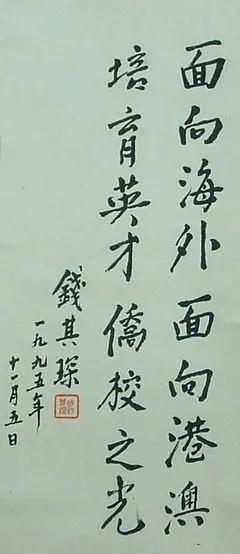 面向海外面向港澳
培育英才僑校之光
錢其琛
一九九五年
十一月五日